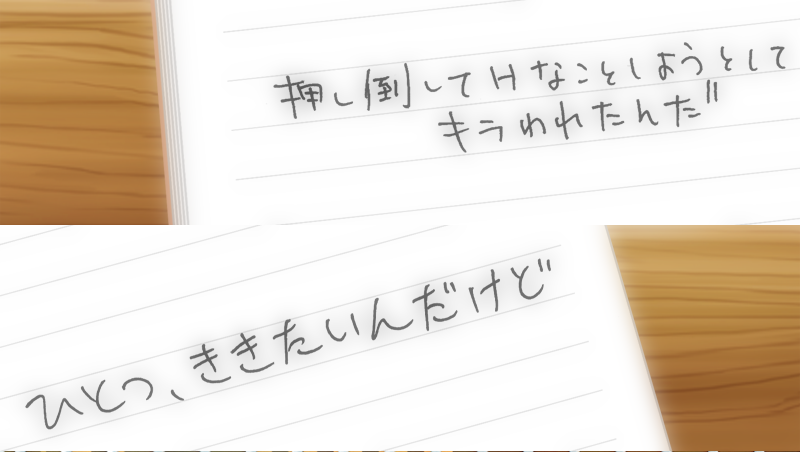 押し倒してHなことしようとして
キラわれたんだ"
ひとつ、ききたいんだけど